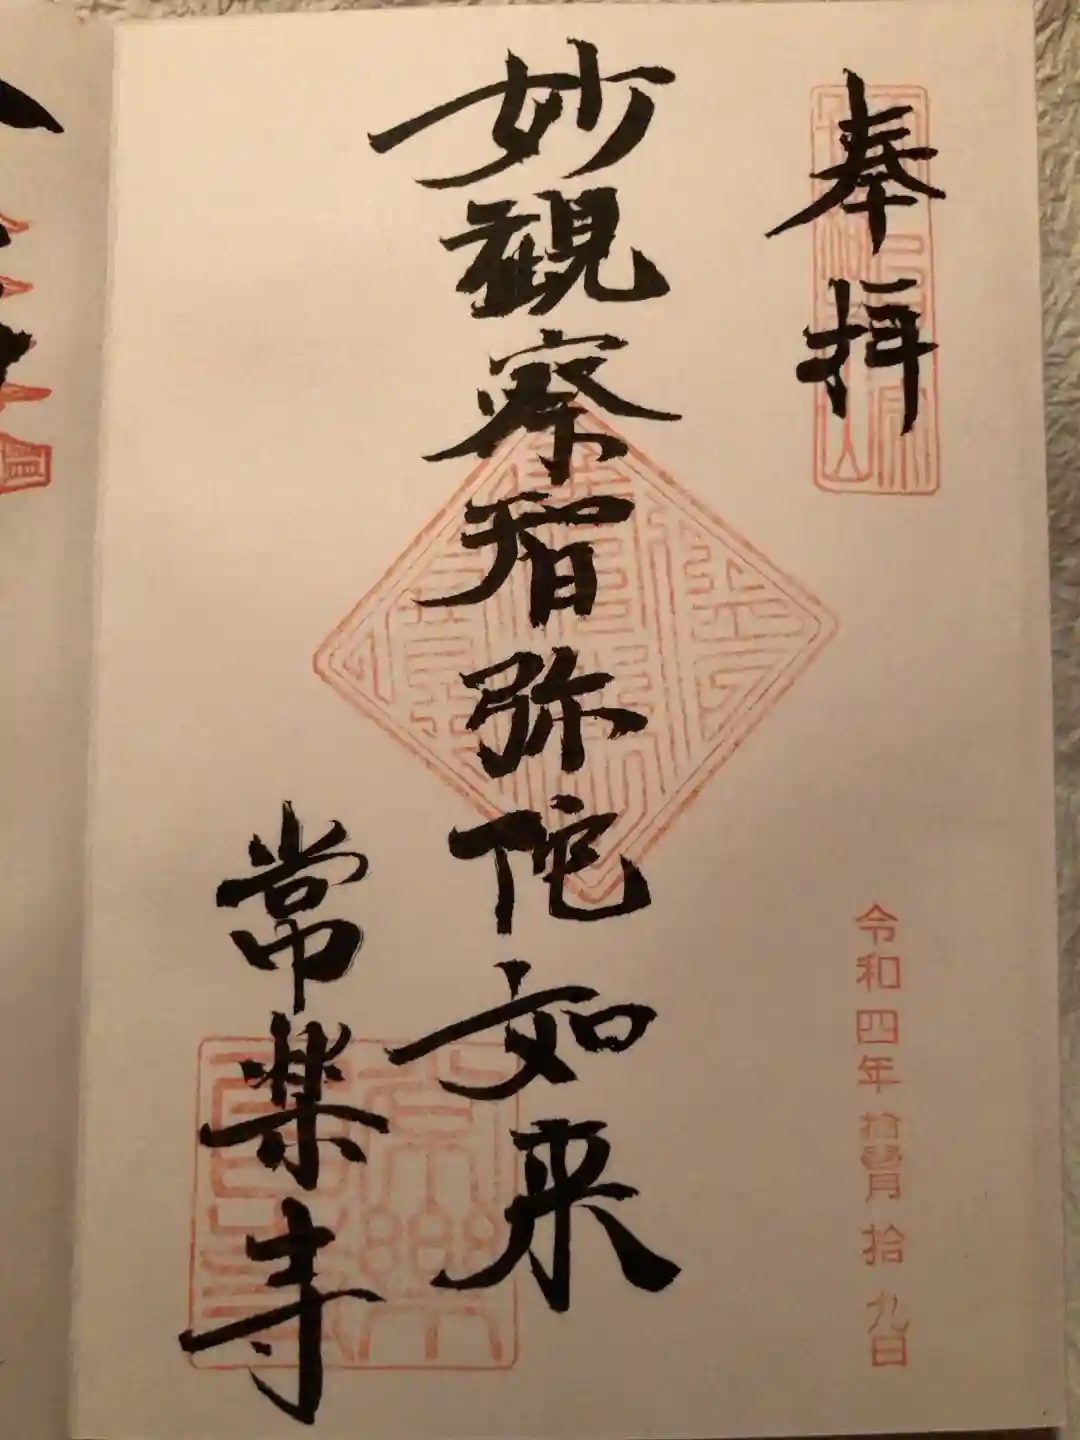 奉拝
令和四年拾壹月拾九日
妙觀察智弥陀如来
常楽寺